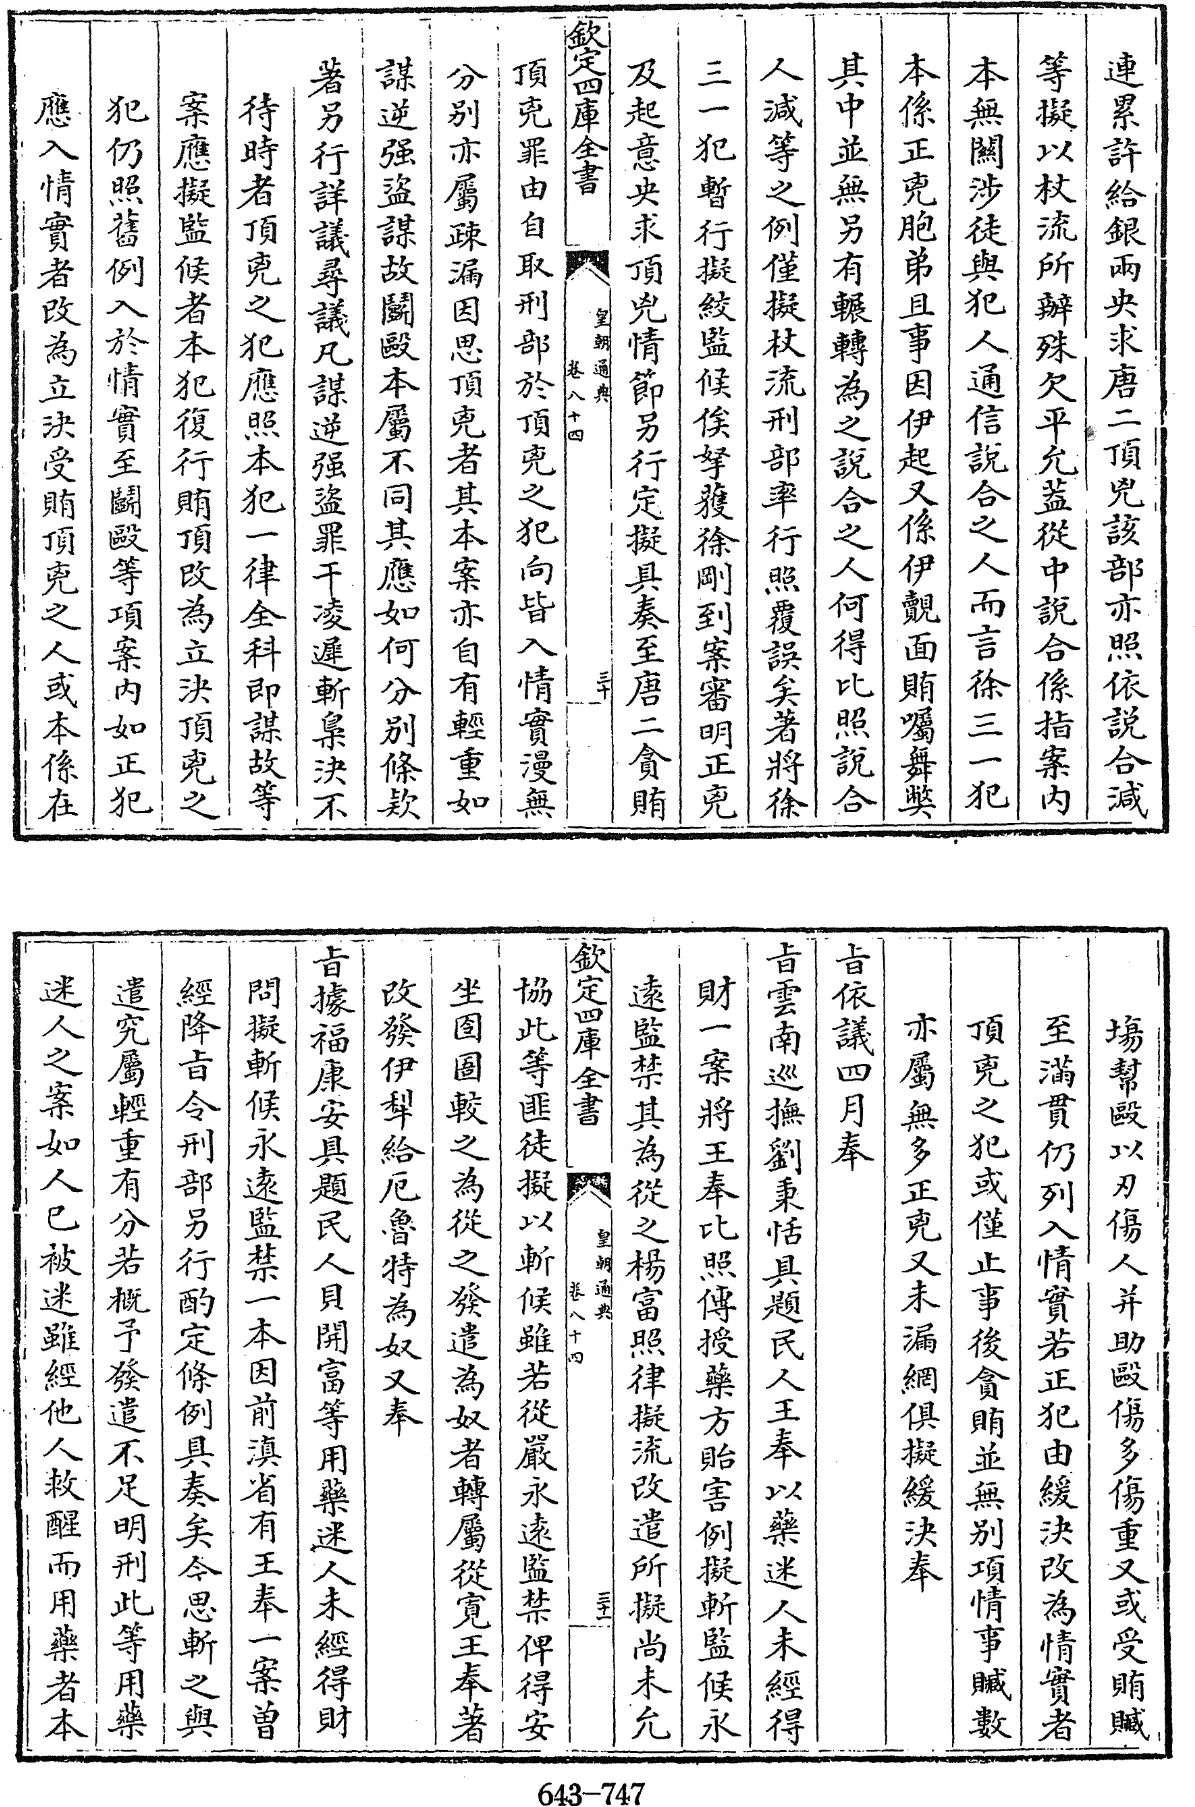 連累許給銀兩央求唐二頂兇該部亦照依説合減
等擬以杖流所辦殊欠平允葢從中説合係指案内
本無關涉徒與犯人通信説合之人而言徐三一犯
本係正兇胞弟且事因伊起又係伊覿面賄囑舞弊
其中並無另有輾轉為之説合之人何得比照説合
人減等之例僅擬杖流刑部率行照覆誤矣著將徐
三一犯暫行擬絞監候俟拏獲徐剛到案審明正兇
及起意央求頂兇情節另行定擬具奏至唐二貪賄
欽定四庫全書
皇朝通典
卷八十四
三十
頂兇罪由自取刑部於頂兇之犯向皆入情實漫無
分别亦屬疎漏因思頂兇者其本案亦自有輕重如
謀逆强盗謀故鬭毆本屬不同其應如何分别條欵
著另行詳議尋議凡謀逆强盗罪干凌遲斬梟決不
待時者頂兇之犯應照本犯一律全科即謀故等
案應擬監候者本犯復行賄頂改為立決頂兇之
犯仍照舊例入於情實至鬭毆等項案内如正犯
應入情實者改為立決受賄頂兇之人或本係在
塲幇毆以刃傷人并助毆傷多傷重又或受賄贓
至滿貫仍列入情實若正犯由緩決改為情實者
頂兇之犯或僅止事後貪賄並無别項情事贓數
亦屬無多正兇又未漏網俱擬緩決奉
旨依議四月奉
旨雲南巡撫劉秉恬具題民人王奉以藥迷人未經得
財一案將王奉比照傳授藥方貽害例擬斬監候永
遠監禁其為從之楊富照律擬流改遣所擬尚未允
欽定四庫全書
皇朝通典
卷八十四
三十一
協此等匪徒擬以斬候雖若從嚴永遠監禁俾得安
坐囹圄較之為從之發遣為奴者轉屬從寛王奉著
改發伊犁給厄魯特為奴又奉
旨據福康安具題民人貝開富等用藥迷人未經得財
問擬斬候永遠監禁一本因前滇省有王奉一案曾
經降旨令刑部另行酌定條例具奏矣今思斬之與
遣究屬輕重有分若概予發遣不足明刑此等用藥
迷人之案如人已被迷雖經他人救醒而用藥者本
643-747